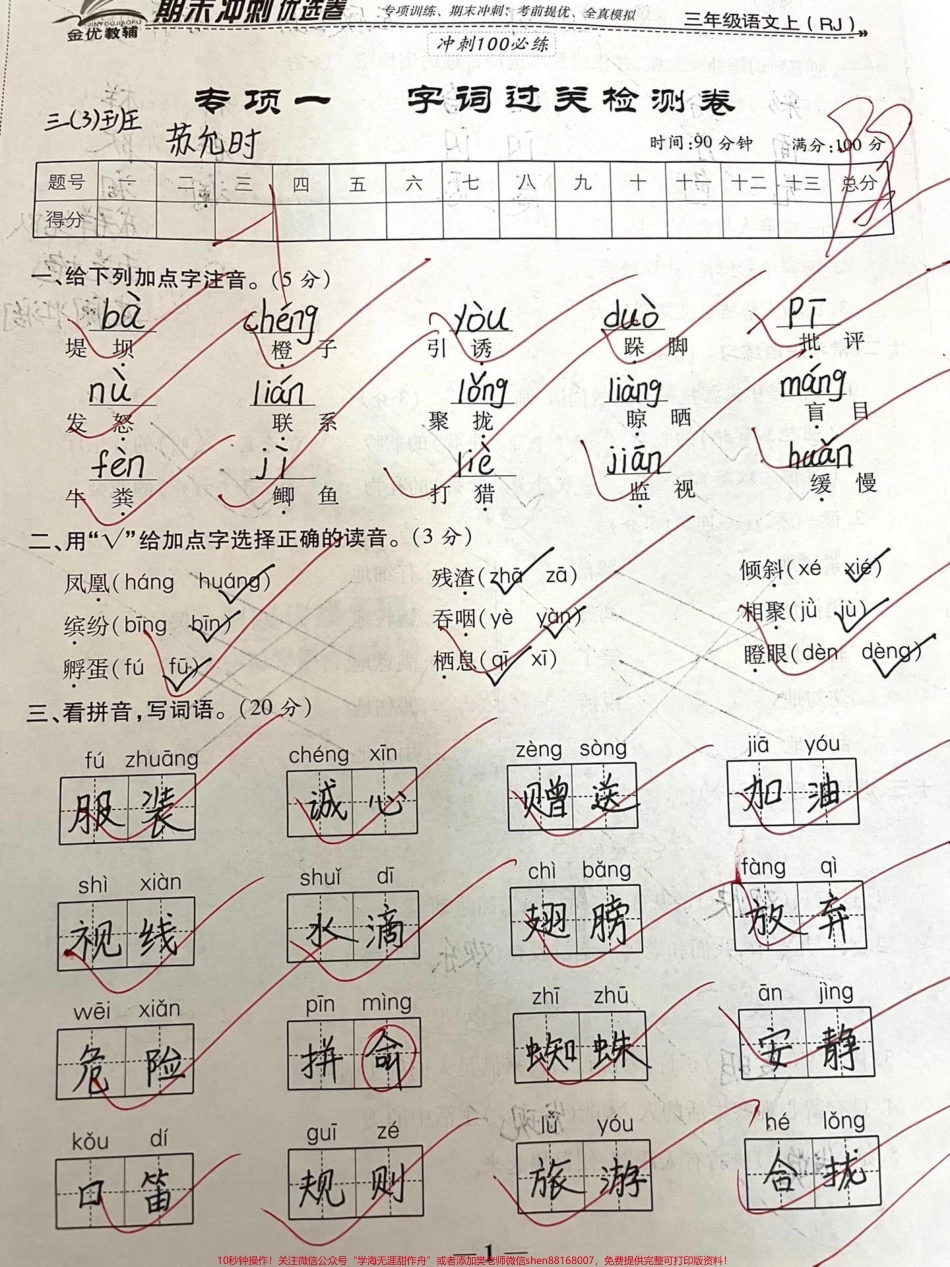 金优教辅
期末冲刺优选卷
专项训练、期末冲刺、考前提优、全真模拟
三年级语文上(RJ)
冲刺100必练
专项一 字词过关检测卷
三(3)班
苏允时
时间:90分钟 满分:100分
题号 一 二 三 四 五 六 七 八 九 十 十一 十二 十三 总分
得分
一、给下列加点字注音。(5分)
bà chéng yòu duò pī
堤坝 橙子 引诱 跺脚 批评
nù lián lǒng liàng máng
发怒 联系 聚拢 晾晒 盲目
fèn jì liè jiān huǎn
牛粪 鲫鱼 打猎 监视 缓慢
二、用“√”给加点字选择正确的读音。(3分)
凤凰(háng huáng) 残渣(zhā zā) 倾斜(xé xié)
缤纷(bīng bīn) 吞咽(yè yàn) 相聚(jǜ jù)
孵蛋(fú fū) 栖息(qī xī) 瞪眼(dèn dèng)
三、看拼音,写词语。(20分)
fú zhuāng chéng xīn zèng sòng jiā yóu
服装 诚心 赠送 加油
shì xiàn shuǐ dī chì bǎng fàng qì
视线 水滴 翅膀 放弃
wēi xiǎn pīn mìng zhī zhū ān jìng
危险 拼命 蜘蛛 安静
kǒu dí guī zé lǚ yóu hé lǒng
口笛 规则 旅游 合拢
— 1 —
10秒钟操作！关注微信公众号“学海无涯甜作舟”或者添加樊老师微信shen88168007，免费提供完整可打印版资料！